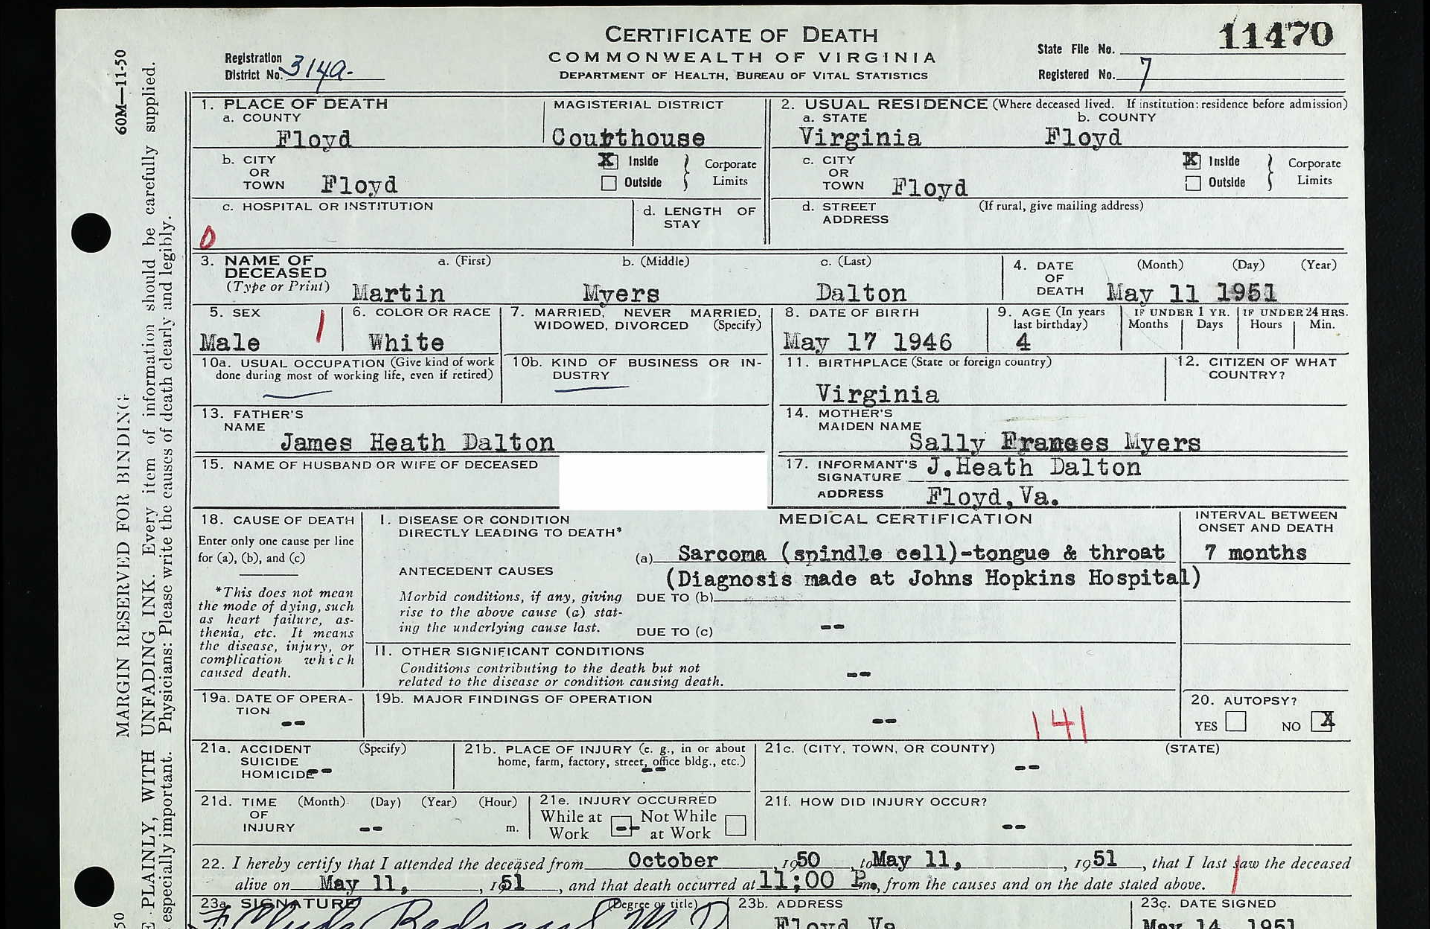 CERTIFICATE OF DEATH
COMMONWEALTH OF VIRGINIA
DEPARTMENT OF HEALTH, BUREAU OF VITAL STATISTICS
Registration District No. 314a-
State File No. 11470
Registered No. 7
60M—11-50
MARGIN RESERVED FOR BINDING
PLAINLY, WITH UNFADING INK. Every item of information should be carefully supplied.
especially important. Physicians: Please write the causes of death clearly and legibly.
1. PLACE OF DEATH
a. COUNTY
Floyd
MAGISTERIAL DISTRICT
Courthouse
b. CITY OR TOWN Floyd
X Inside
Outside
Corporate Limits
c. HOSPITAL OR INSTITUTION
0
d. LENGTH OF STAY
2. USUAL RESIDENCE (Where deceased lived. If institution: residence before admission)
a. STATE
Virginia
b. COUNTY
Floyd
c. CITY OR TOWN Floyd
X Inside
Outside
Corporate Limits
d. STREET ADDRESS
(If rural, give mailing address)
3. NAME OF DECEASED
(Type or Print)
a. (First) b. (Middle) c. (Last)
Martin Myers Dalton
4. DATE OF DEATH
(Month) (Day) (Year)
May 11 1951
5. SEX
Male
1
6. COLOR OR RACE
White
7. MARRIED, NEVER MARRIED, WIDOWED, DIVORCED (Specify)
8. DATE OF BIRTH
May 17 1946
9. AGE (In years last birthday)
4
IF UNDER 1 YR.
Months Days
IF UNDER 24 HRS.
Hours Min.
10a. USUAL OCCUPATION (Give kind of work done during most of working life, even if retired)
10b. KIND OF BUSINESS OR INDUSTRY
11. BIRTHPLACE (State or foreign country)
Virginia
12. CITIZEN OF WHAT COUNTRY?
13. FATHER'S NAME
James Heath Dalton
14. MOTHER'S MAIDEN NAME
Sally Frances Myers
15. NAME OF HUSBAND OR WIFE OF DECEASED
17. INFORMANT'S SIGNATURE J.Heath Dalton
ADDRESS Floyd,Va.
18. CAUSE OF DEATH
Enter only one cause per line for (a), (b), and (c)
*This does not mean the mode of dying, such as heart failure, asthenia, etc. It means the disease, injury, or complication which caused death.
MEDICAL CERTIFICATION
INTERVAL BETWEEN ONSET AND DEATH
I. DISEASE OR CONDITION DIRECTLY LEADING TO DEATH*
(a) Sarcoma (spindle cell)-tongue & throat
7 months
(Diagnosis made at Johns Hopkins Hospital)
ANTECEDENT CAUSES
Morbid conditions, if any, giving rise to the above cause (a) stating the underlying cause last.
DUE TO (b)
DUE TO (c) --
II. OTHER SIGNIFICANT CONDITIONS
Conditions contributing to the death but not related to the disease or condition causing death.
--
19a. DATE OF OPERATION
--
19b. MAJOR FINDINGS OF OPERATION
--
141
20. AUTOPSY?
YES NO X
21a. ACCIDENT SUICIDE HOMICIDE (Specify)
--
21b. PLACE OF INJURY (e. g., in or about home, farm, factory, street, office bldg., etc.)
--
21c. (CITY, TOWN, OR COUNTY) (STATE)
--
21d. TIME OF INJURY (Month) (Day) (Year) (Hour)
-- m.
21e. INJURY OCCURRED
While at Work -- Not While at Work
21f. HOW DID INJURY OCCUR?
--
22. I hereby certify that I attended the deceased from October , 1950 , to May 11, , 1951 , that I last saw the deceased
alive on May 11, , 1951 , and that death occurred at 11:00 P m., from the causes and on the date stated above.
23a. SIGNATURE (Degree or title)
M D
23b. ADDRESS
Floyd Va
23c. DATE SIGNED
May 14 1951